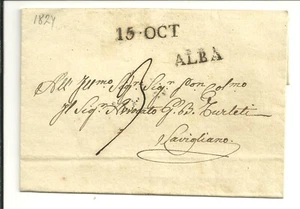 1824
15·OCT
ALBA
All' Illmo. Sigr. Sigr. Pron Colmo
Il Sigr. Avvocato G. B. Turleti
Savigliano.